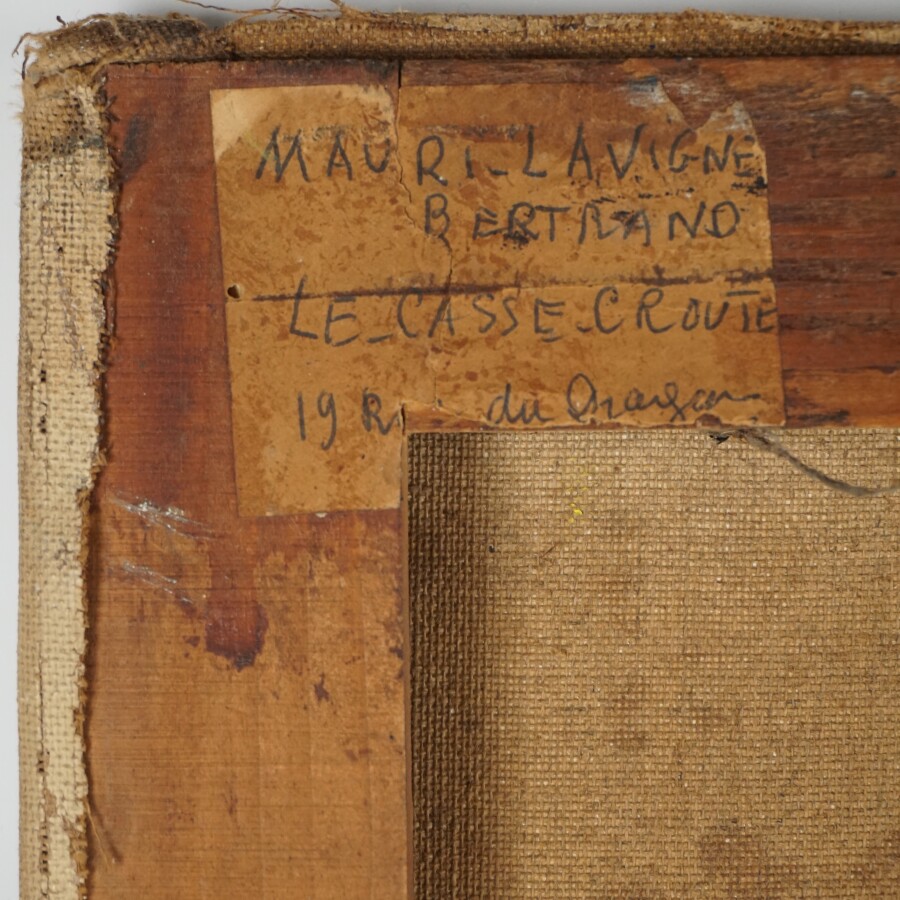 MAURI-LAVIGNE
BERTRAND
LE-CASSE-CROUTE
19 R du Dragon